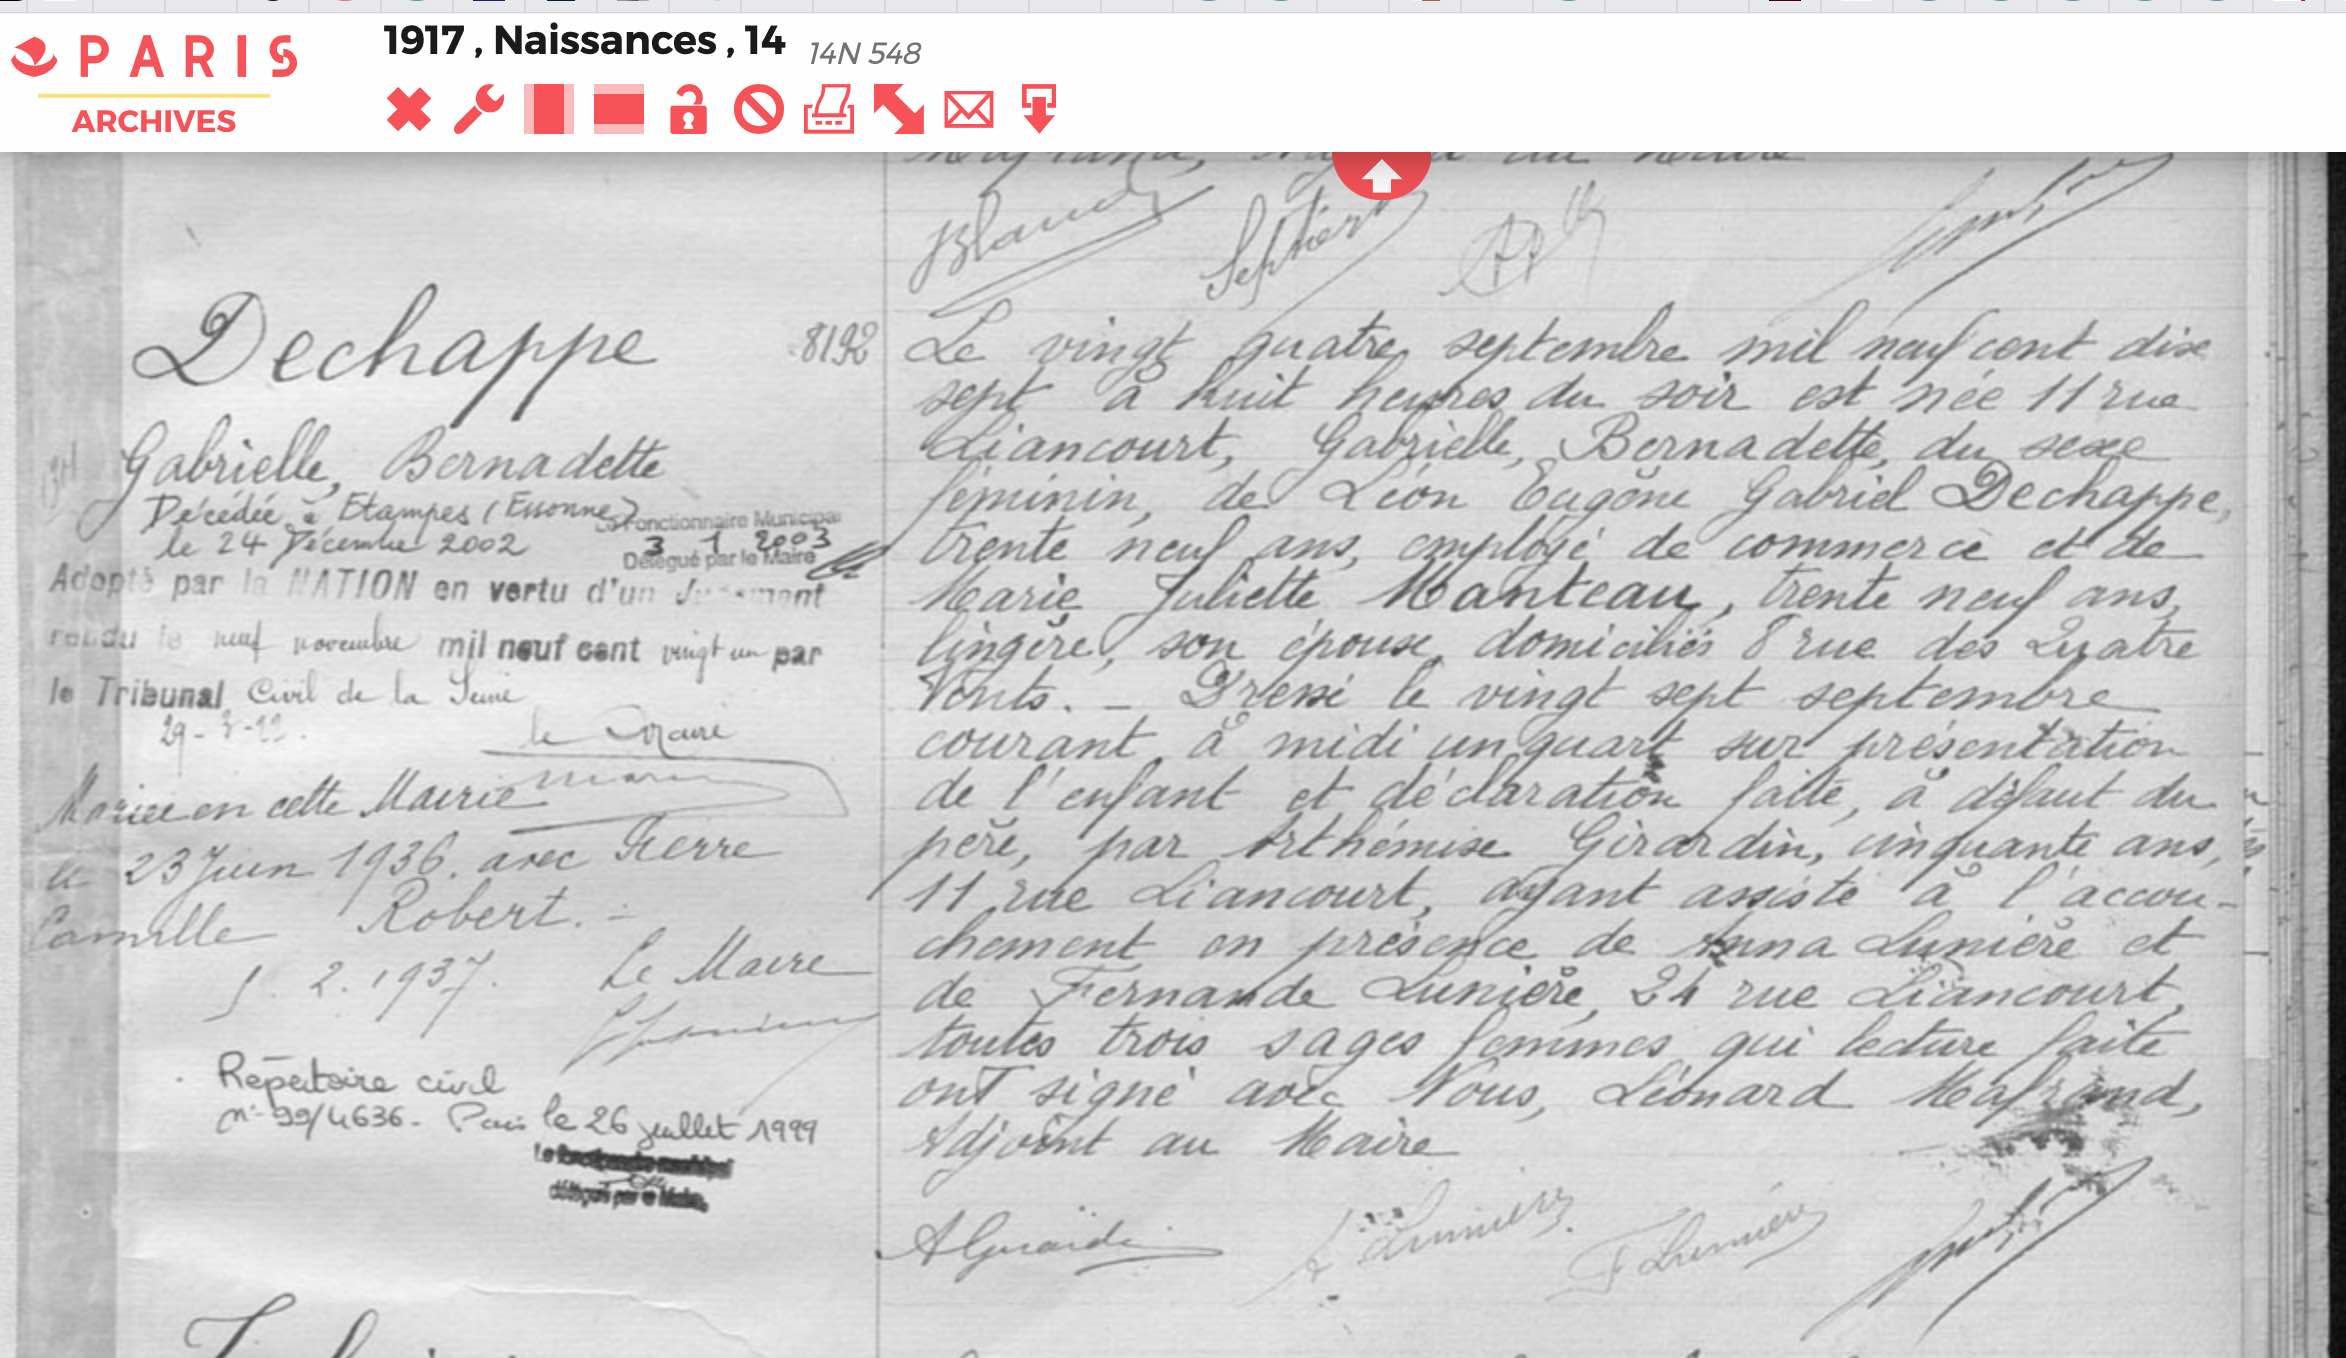 PARIS
ARCHIVES
1917 , Naissances , 14 14N 548
Dechappe
8192
Gabrielle, Bernadette
Décédée à Etampes (Essonne)
le 24 Décembre 2002
Le Fonctionnaire Municipal
3 1 2003
Délégué par le Maire
Adopté par la NATION en vertu d'un Jugement
rendu le neuf novembre mil neuf cent vingt un par
le Tribunal Civil de la Seine
le Maire
Mariée en cette Mairie
le 23 Juin 1936. avec Pierre
Camille Robert. -
2. 1937. Le Maire
Répertoire civil
n° 99/4636 - Paris le 26 juillet 1999
Blanc
Le vingt quatre septembre mil neuf cent dix
sept à huit heures du soir est née 11 rue
Liancourt, Gabrielle, Bernadette, du sexe
féminin, de Léon Eugène Gabriel Dechappe,
trente neuf ans, employé de commerce et de
Marie Juliette Manteau, trente neuf ans,
lingère, son épouse, domiciliés 8 rue des Quatre
Vents. - Dressé le vingt sept septembre
courant, à midi un quart sur présentation
de l'enfant et déclaration faite, à défaut du
père, par Arthémise Girardin, cinquante ans,
11 rue Liancourt, ayant assisté à l'accou-
chement en présence de Anna Lunière et
de Fernande Lunière, 24 rue Liancourt,
toutes trois sages femmes qui lecture faite
ont signé avec Nous, Léonard Mafrand,
Adjoint au Maire
AGirardin
A Lunière
F Lunière